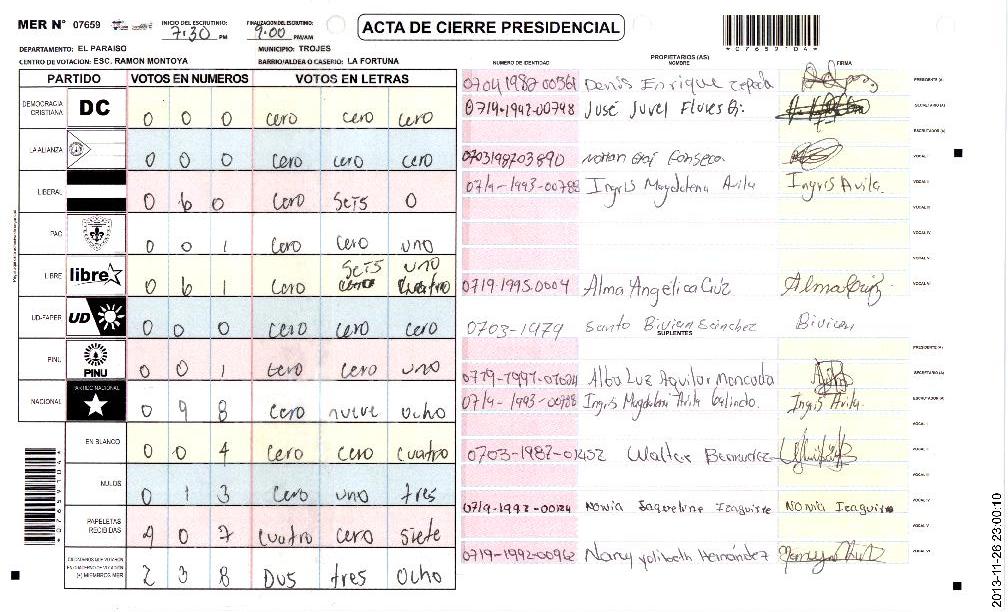 MER N° 07659 INICIO DEL ESCRUTINIO: 7:30 PM FINALIZACIÓN DEL ESCRUTINIO: 9:00 PM/AM
ACTA DE CIERRE PRESIDENCIAL
*07659104*
DEPARTAMENTO: EL PARAISO MUNICIPIO: TROJES
CENTRO DE VOTACION: ESC. RAMON MONTOYA BARRIO/ALDEA O CASERIO: LA FORTUNA
PARTIDO VOTOS EN NUMEROS VOTOS EN LETRAS
DEMOCRACIA CRISTIANA DC 0 0 0 cero cero cero
LA ALIANZA 0 0 0 cero cero cero
LIBERAL 0 6 0 cero seis 0
PAC 0 0 1 cero cero uno
LIBRE libre 0 6 1 cero seis uno
UD-FAPER UD 0 0 0 cero cero cero
PINU PINU 0 0 1 cero cero uno
NACIONAL PARTIDO NACIONAL 0 9 8 cero nueve ocho
EN BLANCO 0 0 4 cero cero cuatro
NULOS 0 1 3 cero uno tres
PAPELETAS RECIBIDAS 4 0 7 cuatro cero siete
(+) MIEMBROS MER 2 3 8 Dos tres ocho
*07659104*
PROPIETARIOS (AS)
NUMERO DE IDENTIDAD NOMBRE FIRMA
Denis Enrique PRESIDENTE (A)
0719-1942-00748 José Juvel Flores SECRETARIO (A)
ESCRUTADOR (A)
0703198703890 Fonseca VOCAL I
0719-1993-00788 Ingris Magdalena Avila Ingris Avila. VOCAL II
VOCAL III
VOCAL IV
VOCAL V
0719-1995-0004 Alma Angelica Cruz Alma Cruz VOCAL VI
0703-1979 Santo Bivian Sánchez Bivian
SUPLENTES
PRESIDENTE (A)
Alba Luz Aguilar Moncada SECRETARIO (A)
Ingris Magdaleni Avila Galindo. Ingris Avila. ESCRUTADOR (A)
VOCAL I
0703-1987-01432 Walter Bermudez VOCAL II
VOCAL III
0719-1992-00124 Saqueline Izaguirre Izaguirre VOCAL IV
VOCAL V
0719-1992-00962 Nancy Yolibeth Hernández VOCAL VI
2013-11-26 23:00:10